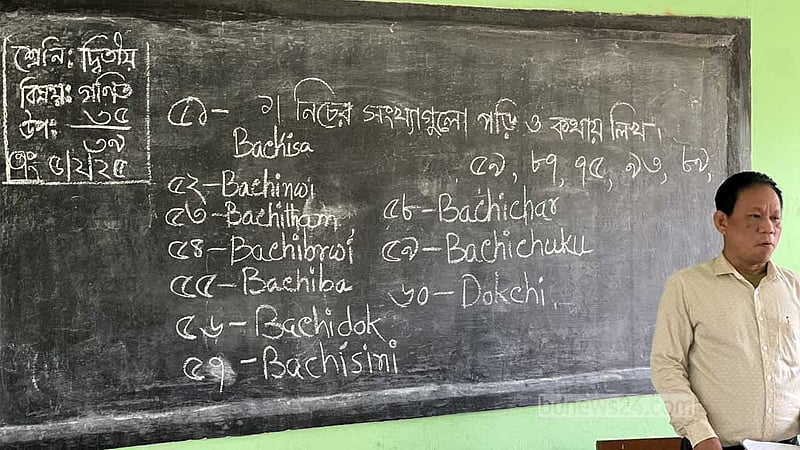 শ্রেনি: দ্বিতীয়
বিষয়: গণিত
উপ: ৩৫
৩৯
৫১- ১। নিচের সংখ্যাগুলো পড়ি ও কথায় লিখি।
Bachisa
৫৯, ৮৭, ৭৫, ৯৩, ৮৯,
৫২-Bachinwi
৫৩-Bachitham, ৫৮-Bachichar
৫৪-Bachibrwi ৫৯-Bachichuku
৫৫-Bachiba ৬০-Dokchi.
৫৬-Bachidok
৫৭-Bachisini
bdnews24.com